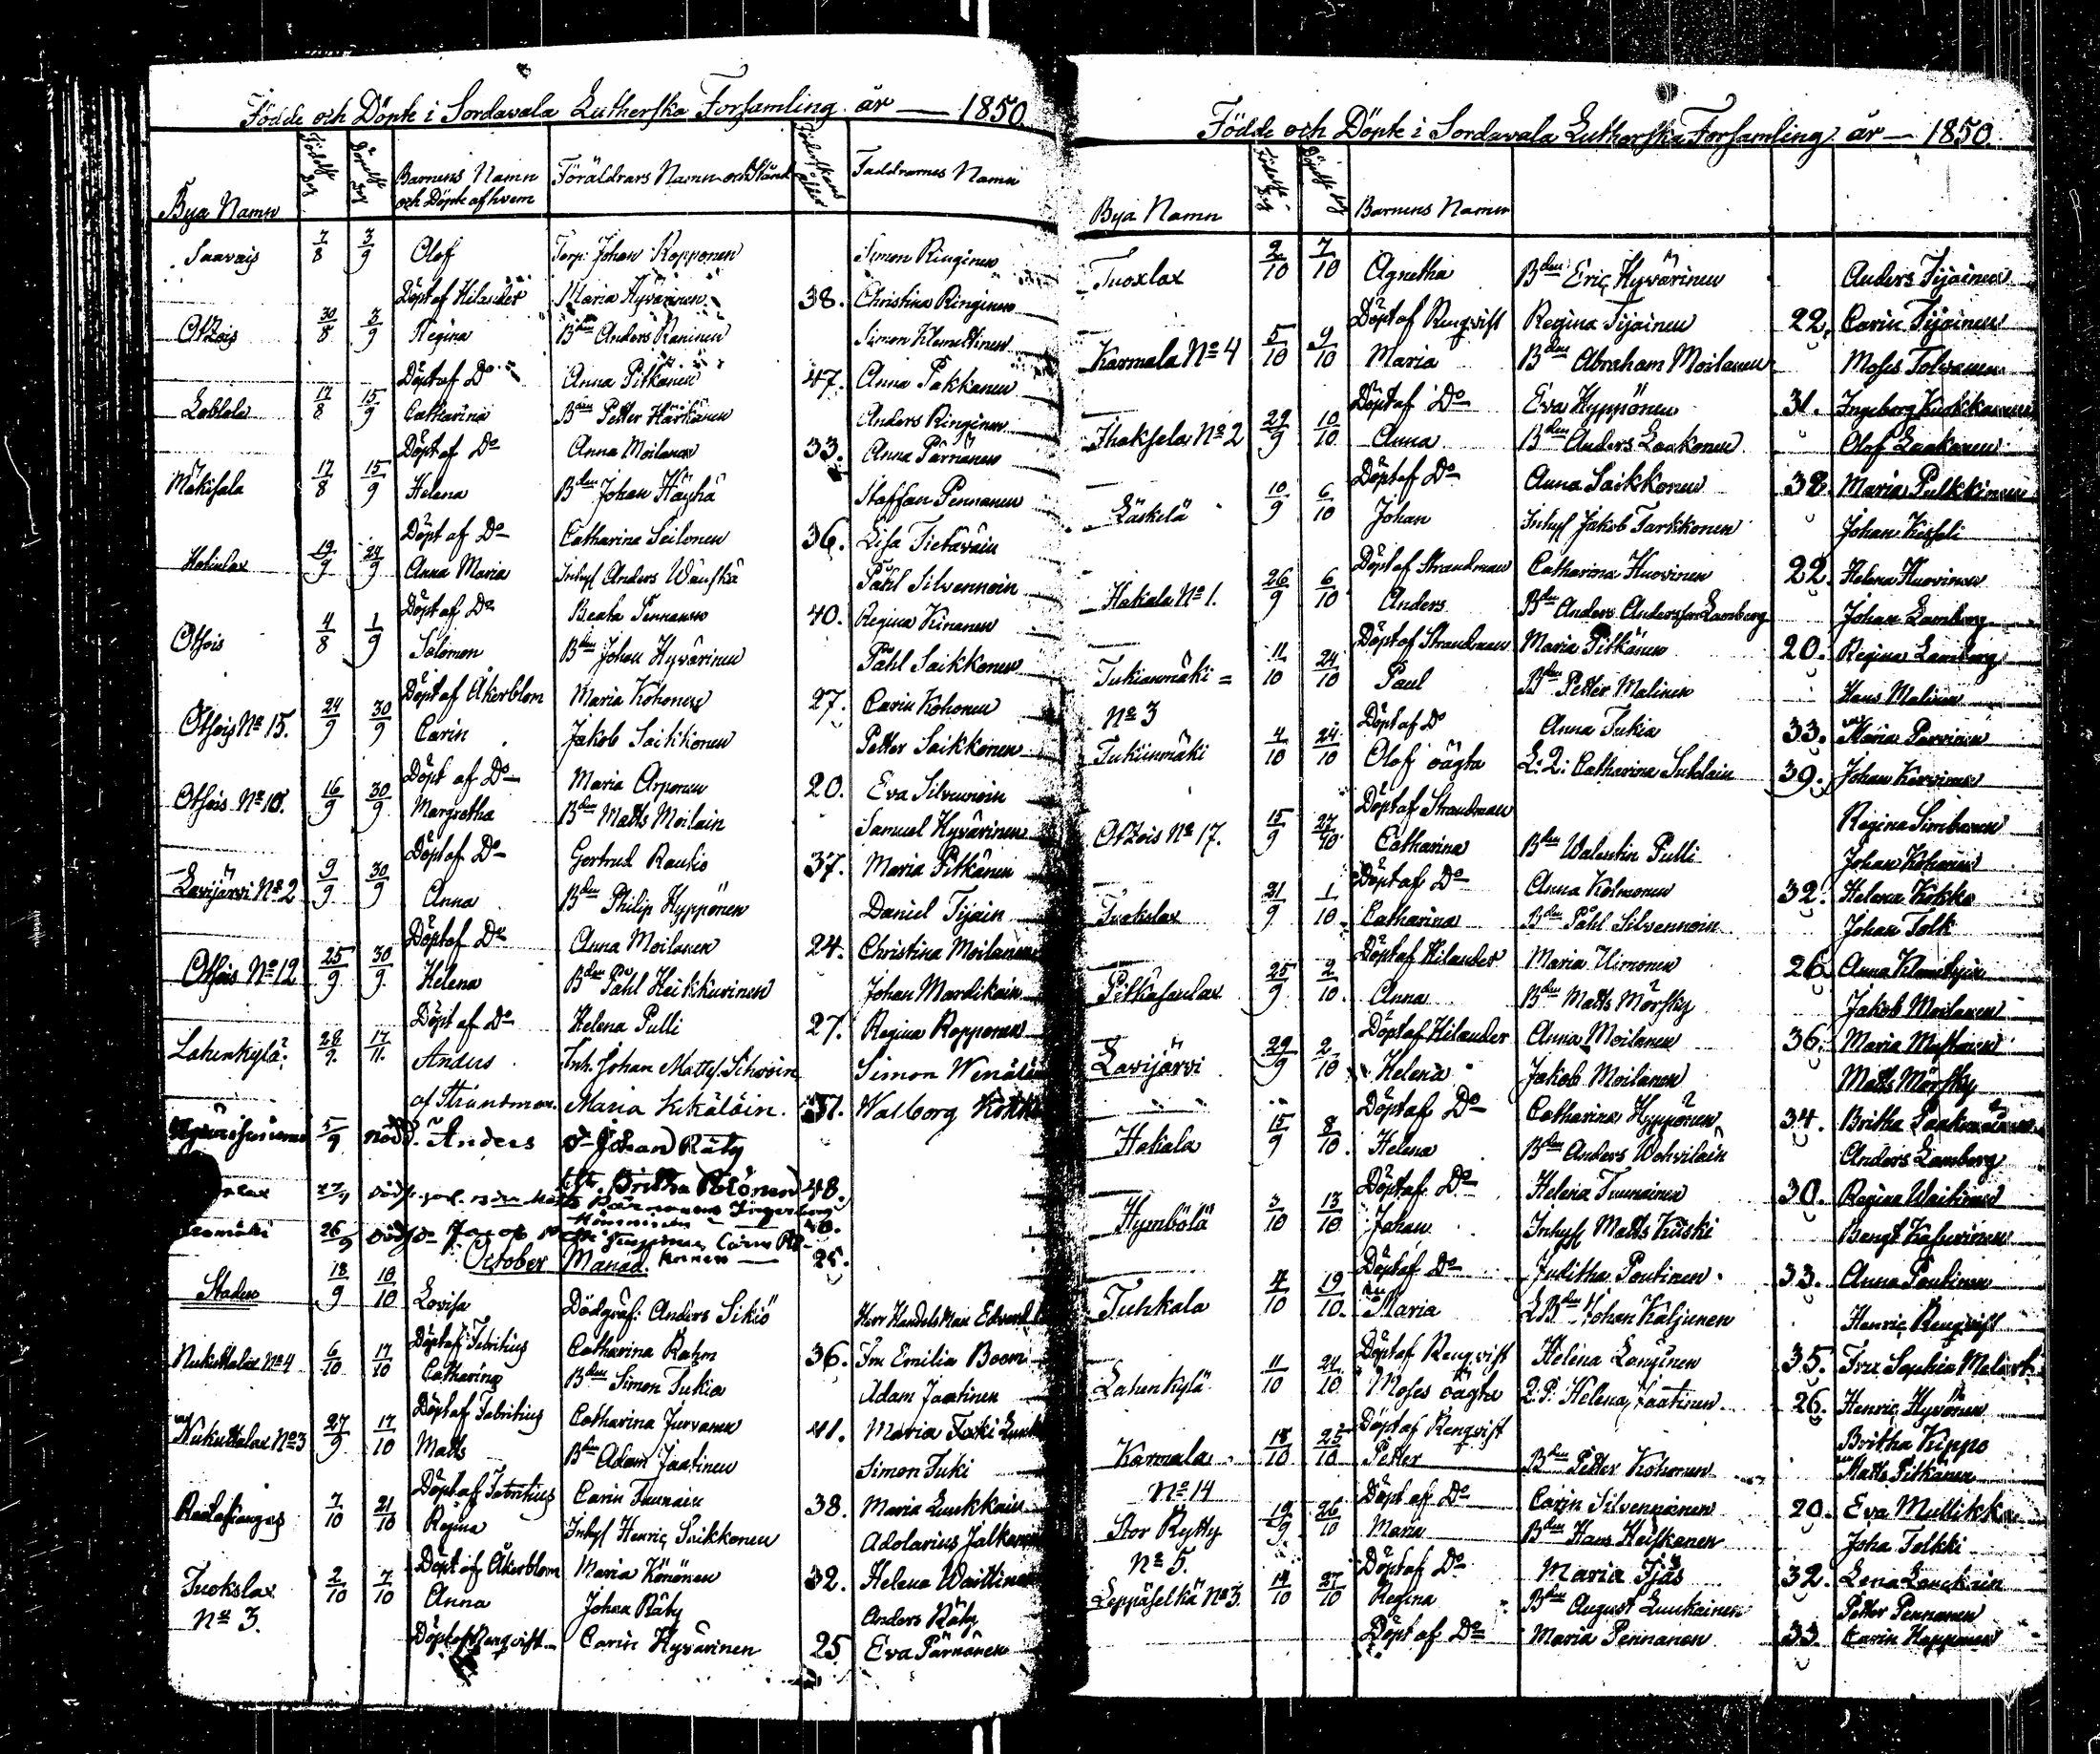 Födde och Döpte i Sordavala Lutherska Forsamling år — 1850
Bya Namn Födelse dag Döpelse dag Barnens Namn och Döpte af hvem Föräldrars Namn och Stånd Taddrarnes Namn
7/8 3/9 Olof Torp: Johan Ropponen Simon Ringinen
Döpt af Hilander Maria Hyvärinen 38. Christina Ringinen
Otsois 30/8 3/9 Regina Bden Anders Raninen Simon Klemettinen
Döpt af Do Anna Pitkänen 47. Anna Pakkanen
17/8 15/9 Catharina Bden Petter Härkönen Anders Ringinen
Döpt af Do Anna Moilanen 33. Anna Pärnänen
Mäkisala 17/8 15/9 Helena Bden Johan Häyhä Staffan Pennanen
Döpt af Do Catharina Seilonen 36. Lisa Tietäväin
19/9 24/9 Anna Maria Inhys Anders Wänskä Påhl Silvennoin
Döpt af Do Beata Pennanen 40. Regina Kinanen
Otsois 4/8 1/9 Salomon Bden Johan Hyvärinen Påhl Saikkonen
Döpt af Åkerblom Maria Kohonen 27. Carin Kohonen
Otsois No 15. 24/9 30/9 Carin Jakob Saikkonen Petter Saikkonen
Döpt af Do Maria Arponen 20. Eva Silvennoin
Otsois No 10. 16/9 30/9 Margretha Bden Matts Moilain Samuel Hyvärinen
Döpt af Do Gertrud Rautio 37. Maria Pitkänen
Lavijärvi No 2 9/9 30/9 Anna Bden Philip Hyppönen Daniel Tijain
Döpt af Do Anna Moilanen 24. Christina Moilanen
Otsois No 12 25/9 30/9 Helena Bden Påhl Heikkurinen Johan Mardikain
Döpt af Do Helena Pulli 27. Regina Ropponen
Lahenkylä 28/9 17/11 Anders Inh. Johan Matts. Sihvoin Simon
af Strandman. Maria Kekäläin. Walborg
5/9 nödd. Anders Johan Räty
Britha 48.
26/9
October Månad. 25.
Staden 18/9 10/10 Lovisa Dödgräf: Anders Sikiö Herr Handels Man Edvard
Döpt af Fabritius Catharina Rahm 36. Fru Emilia Boom
Nukuttalax No 4 6/10 17/10 Catharina Bden Simon Tukia Adam Jaatinen
Döpt af Fabritius Catharina Jurvanen 41. Maria
Nukuttalax No 3 27/9 17/10 Matts Bden Adam Jaatinen Simon Tuki
Döpt af Fabritius Carin Tuunain 38. Maria Luukkain
7/10 21/10 Regina Inhys Henric Saikkonen Adolarius Jalkanen
Döpt af Åkerblom Maria Könönen 32. Helena Waittinen
Tuokslax 2/10 7/10 Anna Johan Räty Anders Räty
No 3. Döpt af Renqvist Carin Hyvärinen 25 Eva Pärnänen
Födde och Döpte i Sordavala Lutherska Forsamling år — 1850.
Bya Namn Födelse dag Döpelse dag Barnens Namn
Tuoxlax 2/10 7/10 Agnetha Bden Eric Hyvärinen Anders Tijainen
Döpt af Renqvist Regina Tijainen 22. Carin Tijainen
Karmala No 4 5/10 9/10 Maria Bden Abraham Moilanen Moses Tolvanen
Döpt af Do Eva Hyppönen 31. Ingeborg
Ihaksela No 2 29/9 10/10 Anna Bden Anders Laakonen Olof Laakonen
Döpt af Do Anna Saikkonen 38. Maria Pulkkinen
Läskelä 10/9 6/10 Johan Inhys Jakob Tarkkonen Johan
Döpt af Strandman Catharina Huovinen 22. Helena Huovinen
Hakala No 1. 26/9 6/10 Anders Bden Anders Andersson Lamberg Johan Lamberg
Döpt af Strandman Maria Pitkänen 20. Regina Lamberg
Tukianmäki = 11/10 24/10 Paul Bden Petter Malinen Hans Malinen
No 3 Döpt af Do Anna Tukia 33. Maria Parvinen
Tukianmäki 4/10 24/10 Olof oägta L: Q: Catharina Suklain 39. Johan Karvinen
Döpt af Strandman Regina Simbanen
Otsois No 17. 15/9 27/10 Catharina Bden Walentin Pulli Johan Kohonen
Döpt af Do Anna Kolmonen 32. Helena Kokko
Tuokslax 21/9 1/10. Catharina Bden Påhl Silvennoin Johan Tolk
Döpt af Hilander Maria Uimonen 26. Anna
25/9 2/10. Anna Bden Matts Mörsky Jakob Moilanen
Döpt af Hilander Anna Moilanen 36. Maria Mustonen
Lavijärvi 29/9 2/10 Helena Jakob Moilanen Matts Mörsky
Döpt af Do Catharina Hyppönen 34. Britha
Hakala 15/9 8/10. Helena Bden Anders Wohvilain Anders Lamberg
Döpt af Do Helena Tuunainen 30. Regina Waitinen
Hymbölä 3/10 13/10 Johan Inhys Matts Kuiski Bengt Kasurinen
Döpt af Do Juditha Poutinen 33. Anna Poutinen
Tuhkala 4/10 19/10. Maria LBden Johan Kaljunen Henric Renqvist
Döpt af Renqvist Helena Länginen 35. Fru Sophia
Lahenkylä 11/10 24/10 Moses oägta Q. P. Helena Jaatinen. 26. Henric Hyvönen
Döpt af Renqvist Britha Kippo
Karmala 18/10 25/10 Petter Bden Petter Kohonen Matts Pitkänen
No 14 Döpt af Do Carin Silvennainen 20. Eva Mullikka
Stor Rytty 19/9 26/10 Maria Bden Hans Heiskanen Joha Tolkki
No 5. Döpt af Do Maria Tjäs 32. Lena Laukain
Leppäselkä No 3. 14/10 27/10 Regina Bden August Luukainen Petter Pennanen
Döpt af Do Maria Pennanen 33. Carin Happonen